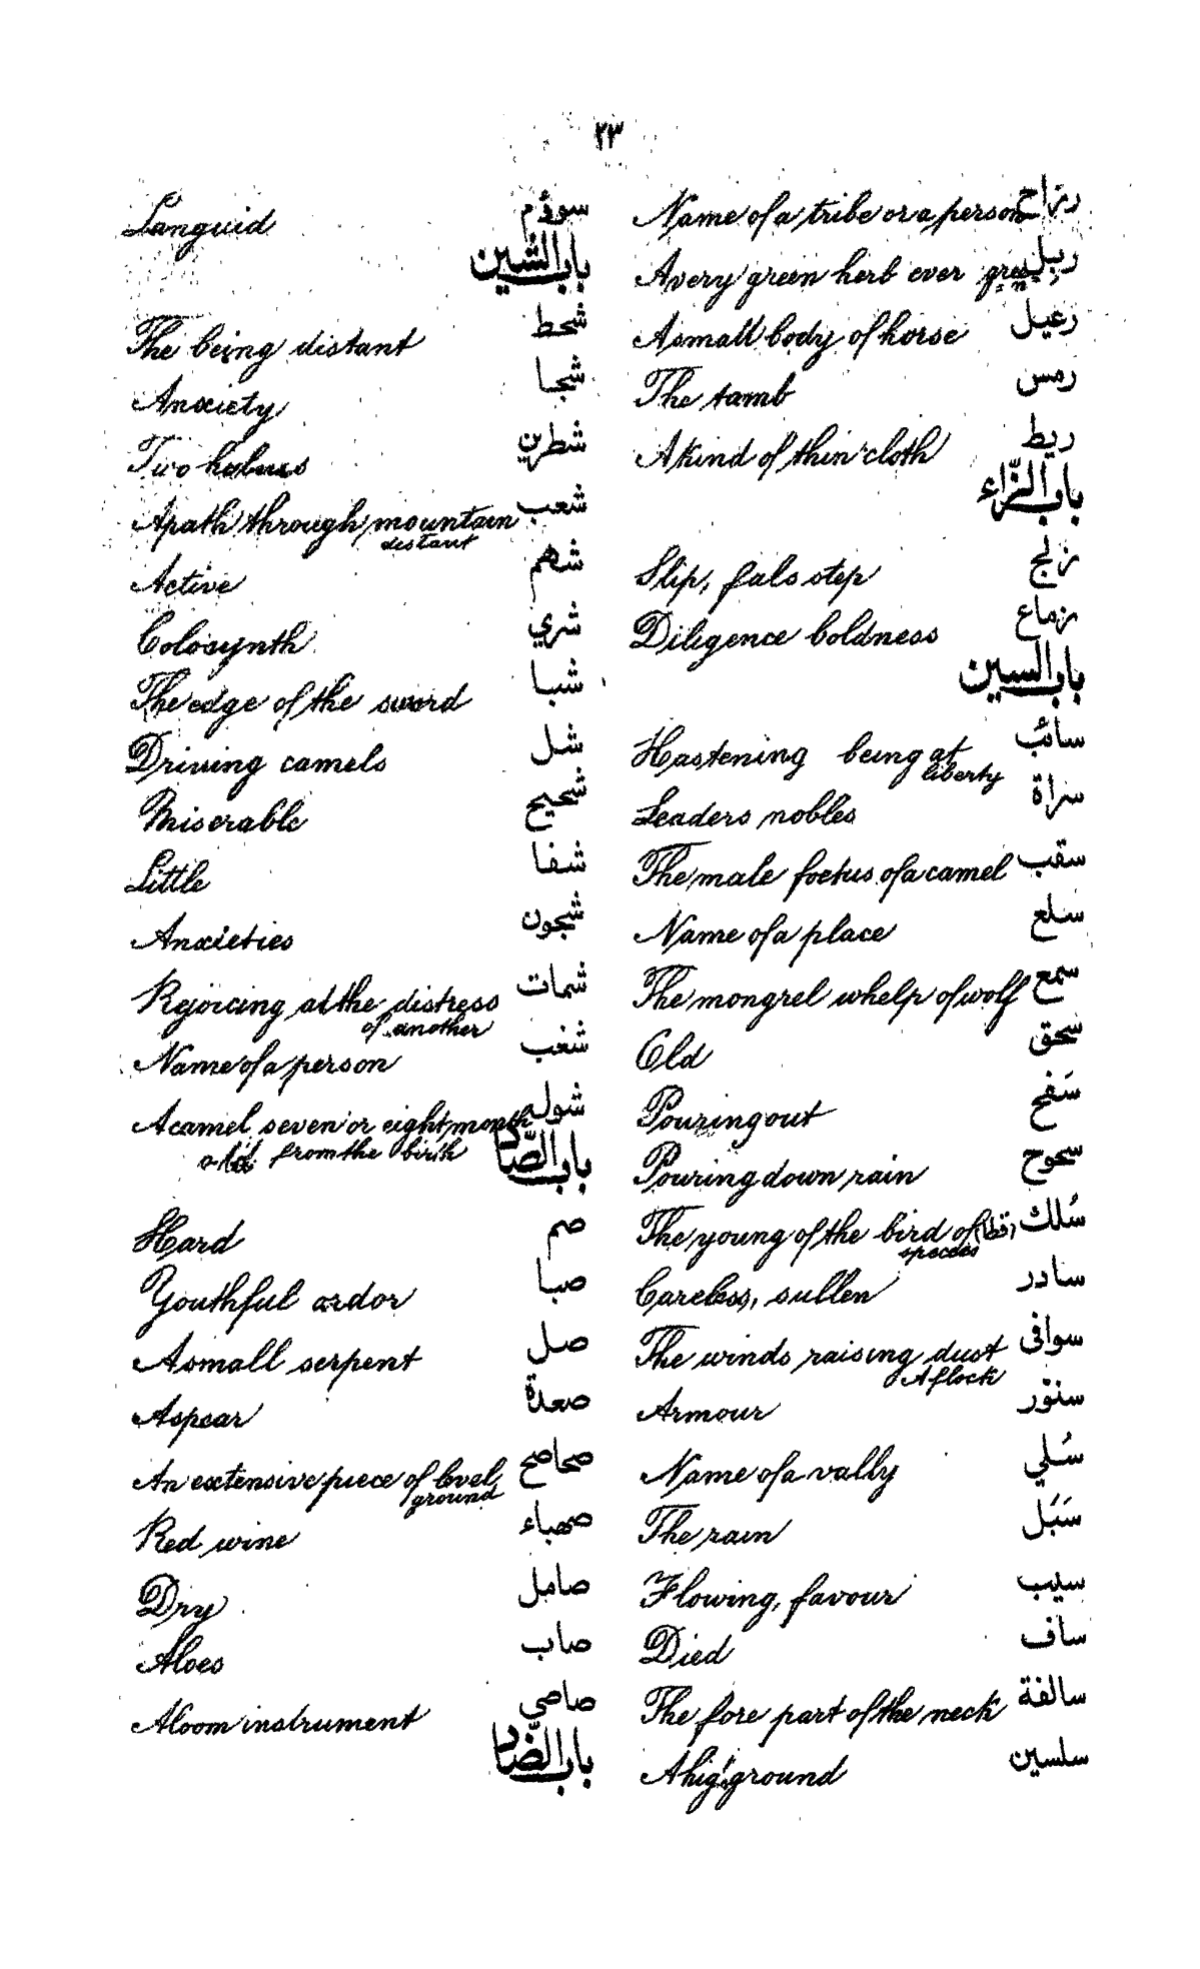 ٢٣
رزاح Name of a tribe or a person
ربيل A very green herb ever green
رعيل A small body of horse
رمس The tamb
ريط A kind of thin cloth
باب الزّاء
زلج Slip, fals step
زماع Diligence boldness
باب السين
سائب Hastening being at
liberty
سراة Leaders nobles
سقب The male foetus of a camel
سلع Name of a place
سمع The mongrel whelp of wolf
سحق Old
سَفح Pouring out
سحوح Pouring down rain
سُلك The young of the bird of (قطا)
species
سادر Careless, sullen
سوافى The winds raising dust
A flock
سنوّر Armour
سُلي Name of a vally
سَبَل The rain
سيب Flowing, favour
ساف Died
سالفة The fore part of the neck
سلسين A high ground
سوؤم Languid
باب الشين
شحط The being distant
شجبا Anxiety
شطرين Two halves
شعب A path through mountain
distant
شهم Active
شري Colosynth
شبا The edge of the sword
شل Driving camels
شحيح Miserable
شفا Little
شجون Anxieties
شمات Rejoicing at the distress
of another
شغب Name of a person
شوله A camel seven or eight month
old from the birth
باب الصّاد
صم Hard
صبا Youthful ardor
صل A small serpent
صعدة A spear
صحاصح An extensive piece of level
ground
صهباء Red wine
صامل Dry
صاب Aloes
صاصي A loom instrument
باب الضّاد